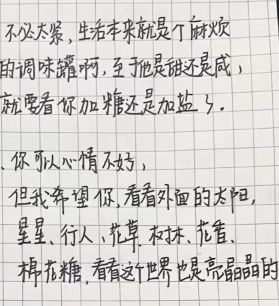 不必大紧,生活本来就是个麻烦
的调味罐啊,至于他是甜还是咸,
就要看你加糖还是加盐了.
、你可以心情不好,
但我希望你,看看外面的太阳,
星星、行人、花草、树林、花香、
棉花糖,看看这个世界也是亮晶晶的